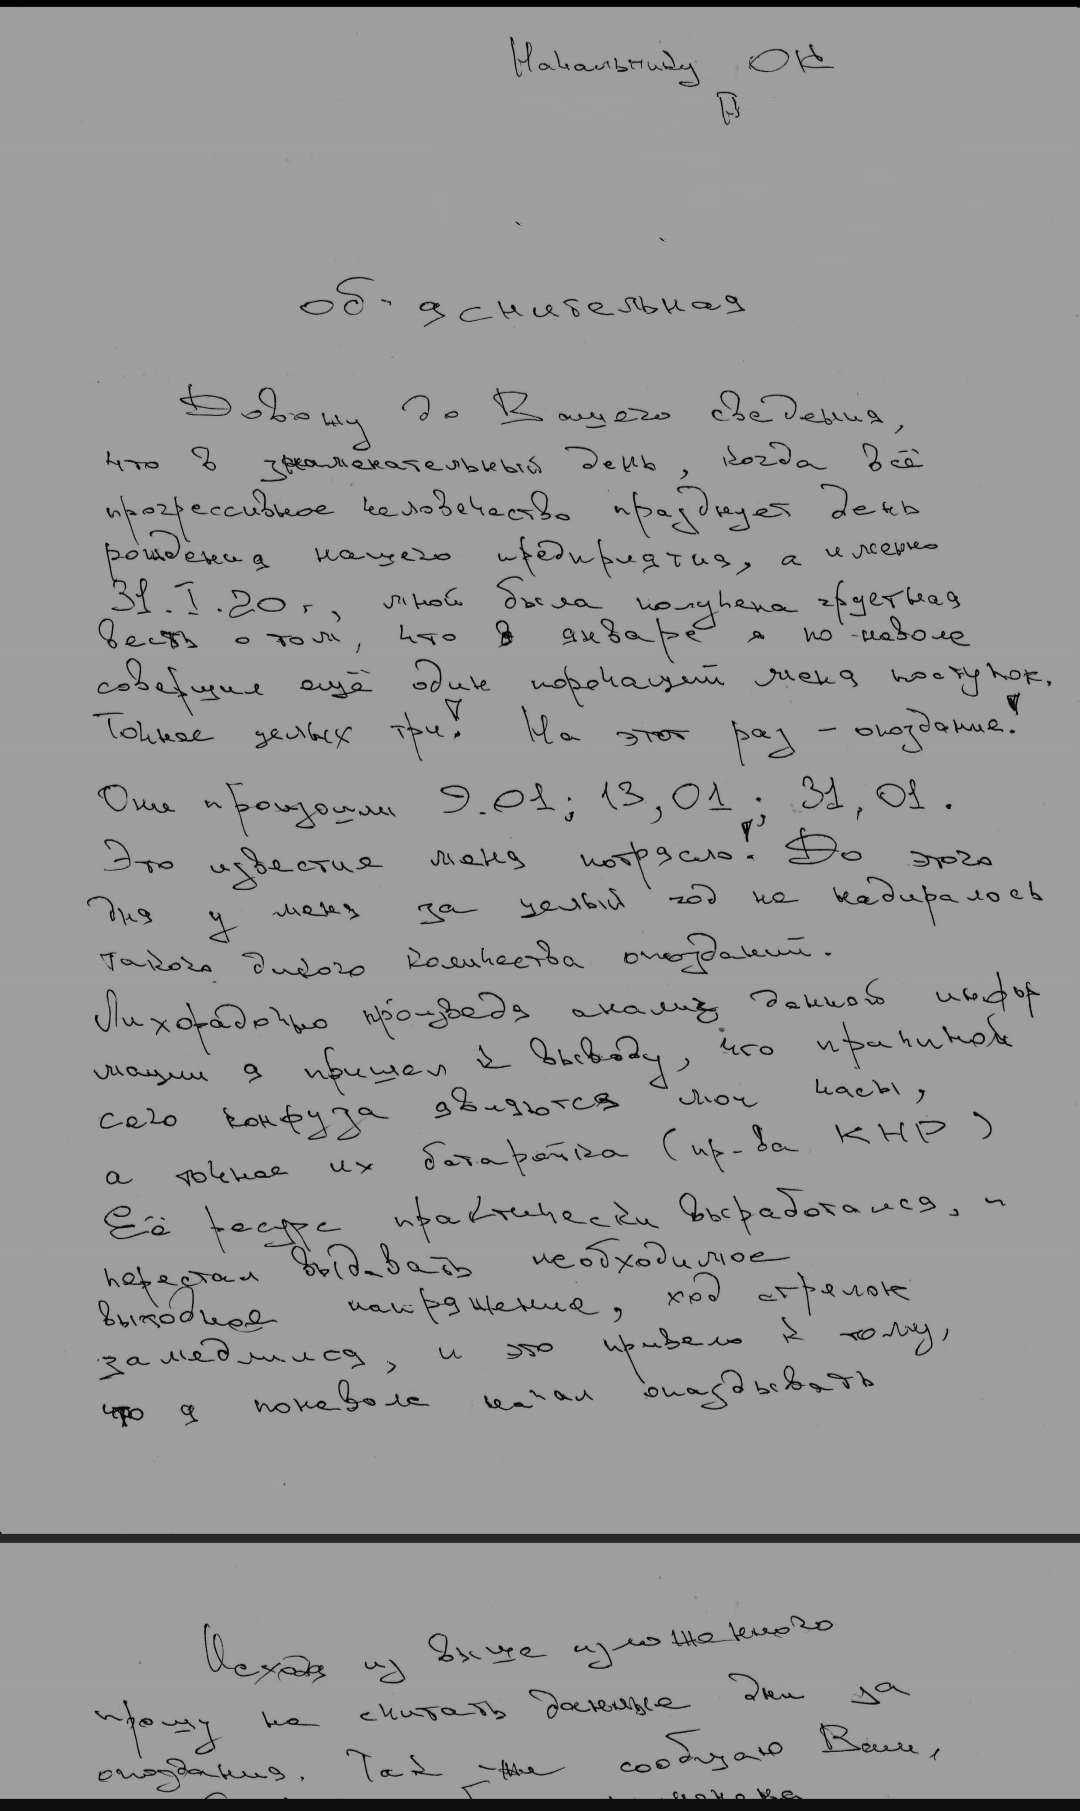 Начальнику ОК
об-яснительная
Довожу до Вашего сведения,
что в знаменательный день, когда всё
прогрессивное человечество празднует день
рождения нашего предприятия, а именно
31.I.20 г, мной была получена грустная
весть о том, что в январе я по-неволе
совершил ещё один порочащий меня поступок.
Точнее целых три! На этот раз - опоздание!
Они произошли 9.01; 13,01; 31,01.
Это известие меня потрясло! До этого
дня у меня за целый год не набиралось
такого дикого количества опозданий.
Лихорадочно произведя анализ данной инфор
мации я пришел к выводу, что причиной
сего конфуза являются мои часы,
а точнее их батарейка (пр-ва КНР)
Её ресурс практически выработался, и
перестал выдавать необходимое
выходное напряжение, ход стрелок
замедлился, и это привело к тому,
что я поневоле начал опаздывать
Исходя из выше изложенного
прошу не считать данные дни за
опоздания. Так же сообщаю Вам,